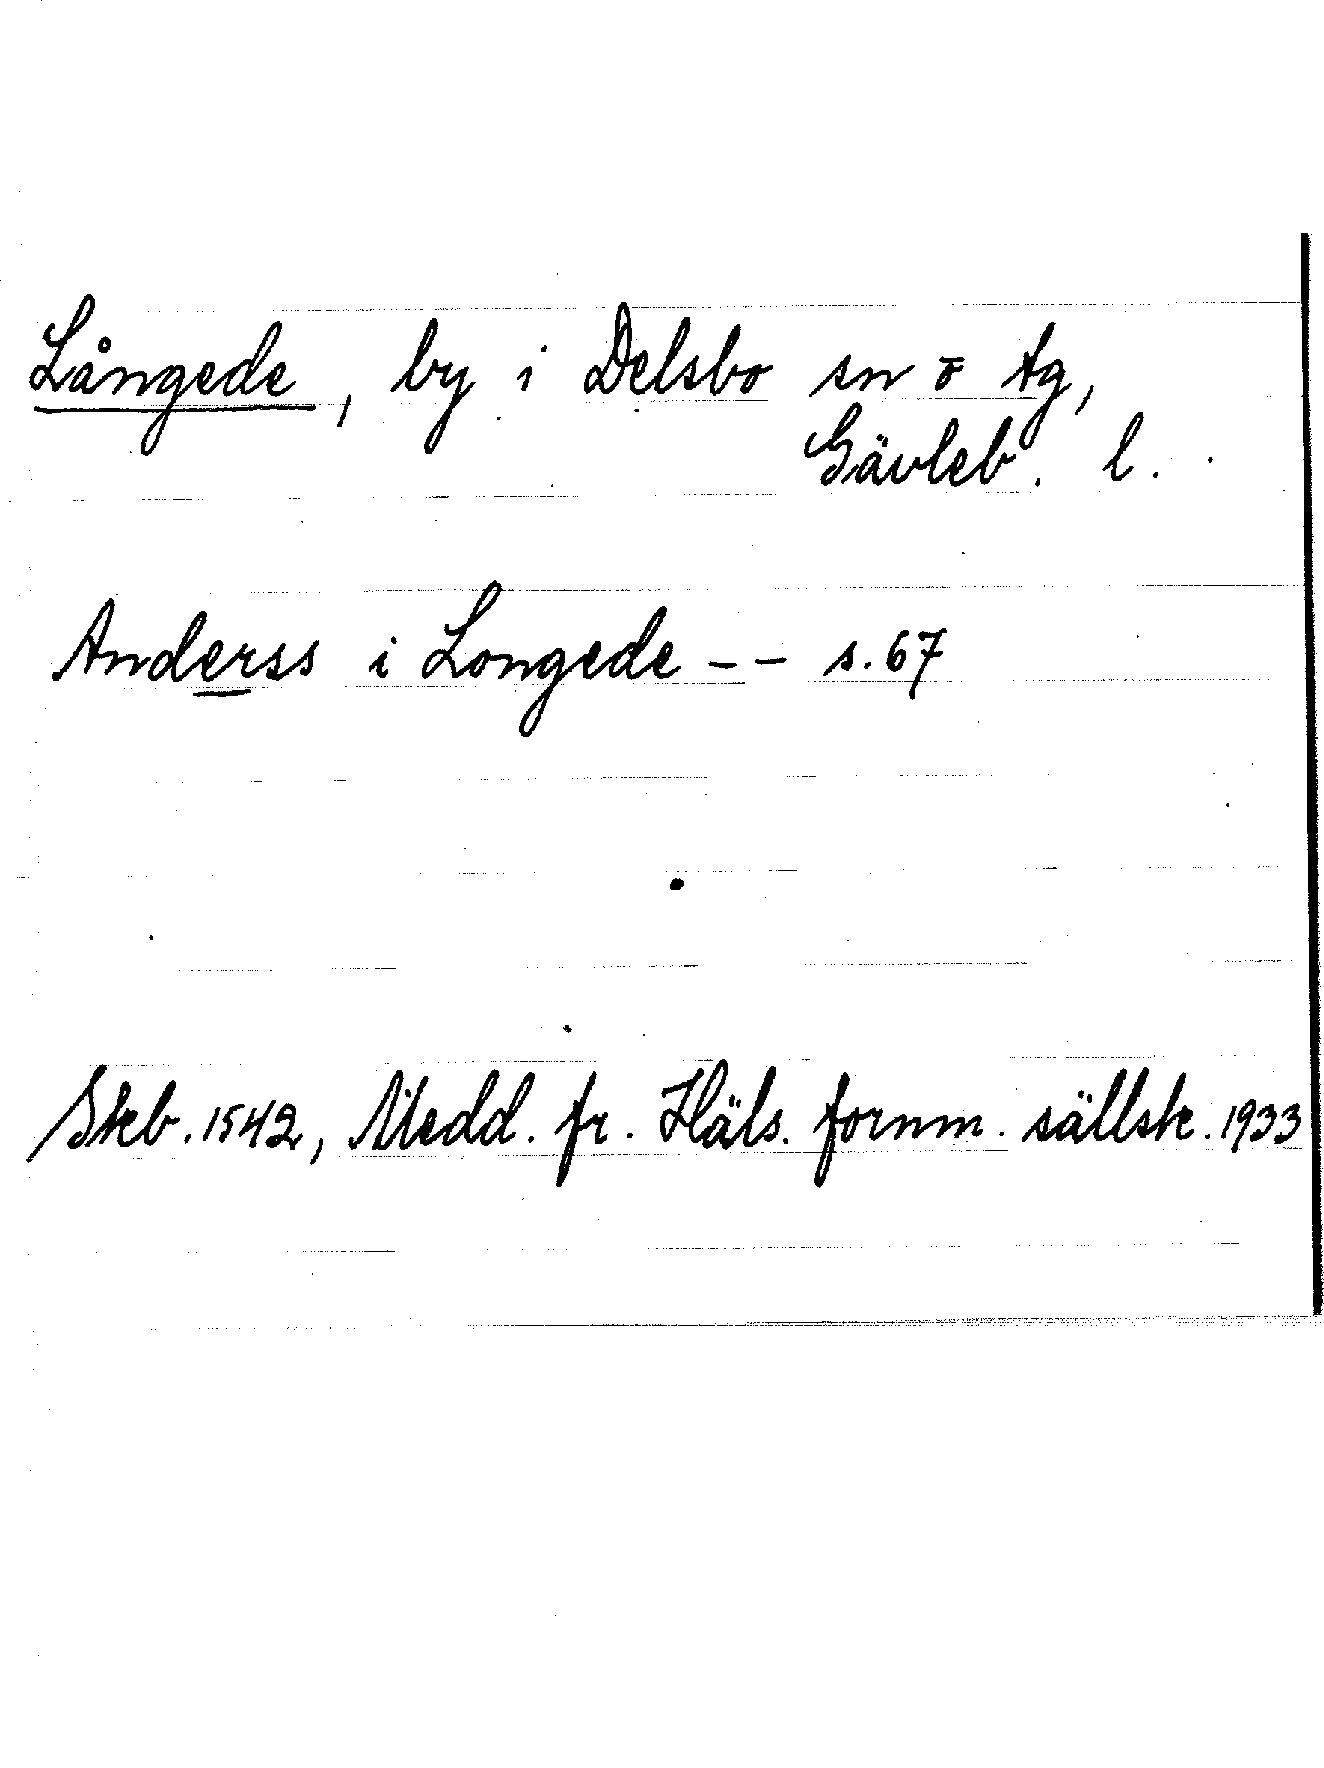 Långede, by i Delsbo sn o tg,
Gävleb. l.
Anderss i Longede -- s.67
Skb. 1542, Medd. fr. Häls. fornm. sällsk. 1933